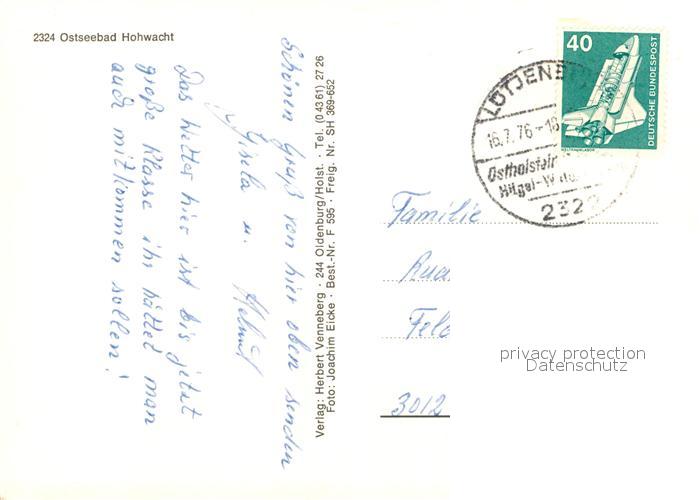 2324 Ostseebad Hohwacht
Schönen Gruß von hier oben senden
Gisela u. Helmut
Das Wetter hier ist bis jetzt
große Klasse ihr hättet man
auch mitkommen sollen!
Verlag: Herbert Venneberg · 244 Oldenburg/Holst. · Tel. (0 43 61) 27 26
Foto: Joachim Eicke · Best.-Nr. F 595 · Freig. Nr. SH 369-652
40
DEUTSCHE BUNDESPOST
WELTRAUMLABOR
16.7.76-18
2322
Familie
3012
privacy protection
Datenschutz